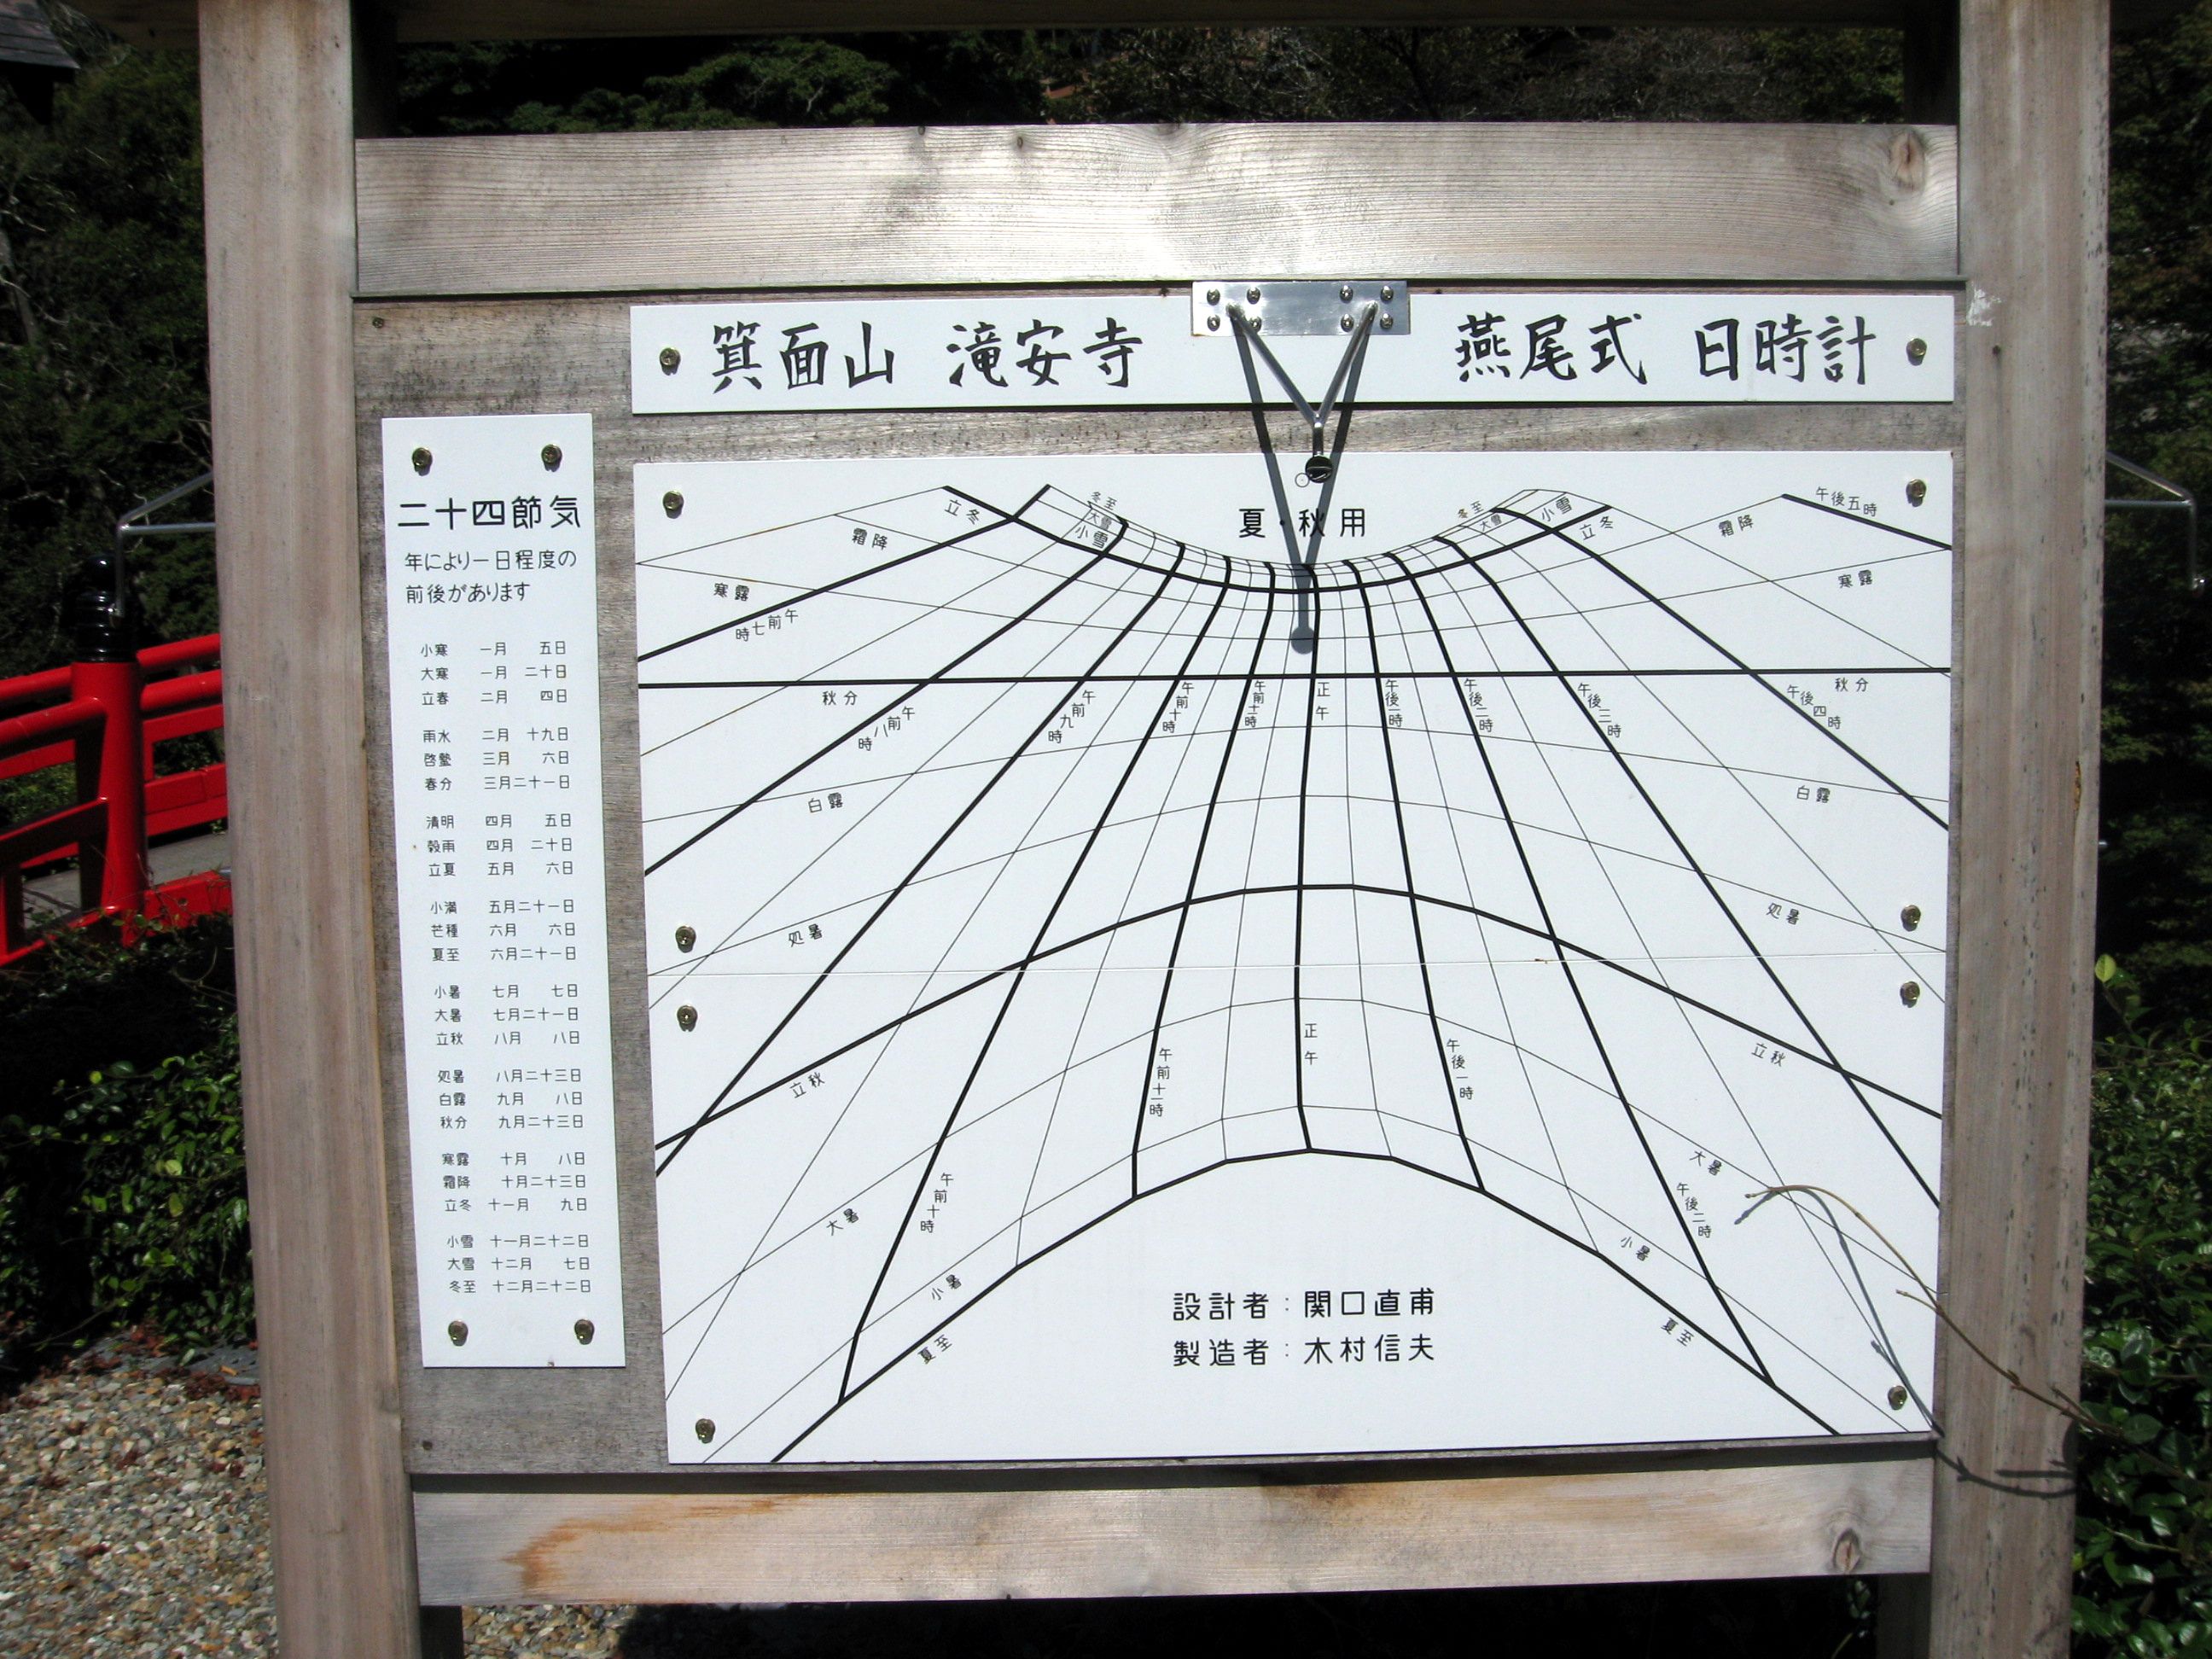 箕面山 滝安寺 燕尾式 日時計
二十四節気
年により一日程度の
前後があります
小寒 一月 五日
大寒 一月 二十日
立春 二月 四日
雨水 二月 十九日
啓蟄 三月 六日
春分 三月二十一日
清明 四月 五日
穀雨 四月 二十日
立夏 五月 六日
小満 五月二十一日
芒種 六月 六日
夏至 六月二十一日
小暑 七月 七日
大暑 七月二十一日
立秋 八月 八日
処暑 八月二十三日
白露 九月 八日
秋分 九月二十三日
寒露 十月 八日
霜降 十月二十三日
立冬 十一月 九日
小雪 十一月二十二日
大雪 十二月 七日
冬至 十二月二十二日
夏・秋用
立冬
冬至
大雪
小雪
冬至
大雪
小雪
立冬
霜降
霜降
午後五時
寒露
寒露
午前七時
秋分
秋分
午前八時
午前九時
午前十時
午前十一時
正午
午後一時
午後二時
午後三時
午後四時
白露
白露
処暑
処暑
立秋
立秋
午前十時
午前十一時
正午
午後一時
午後二時
大暑
大暑
小暑
小暑
夏至
夏至
設計者:関口直甫
製造者:木村信夫